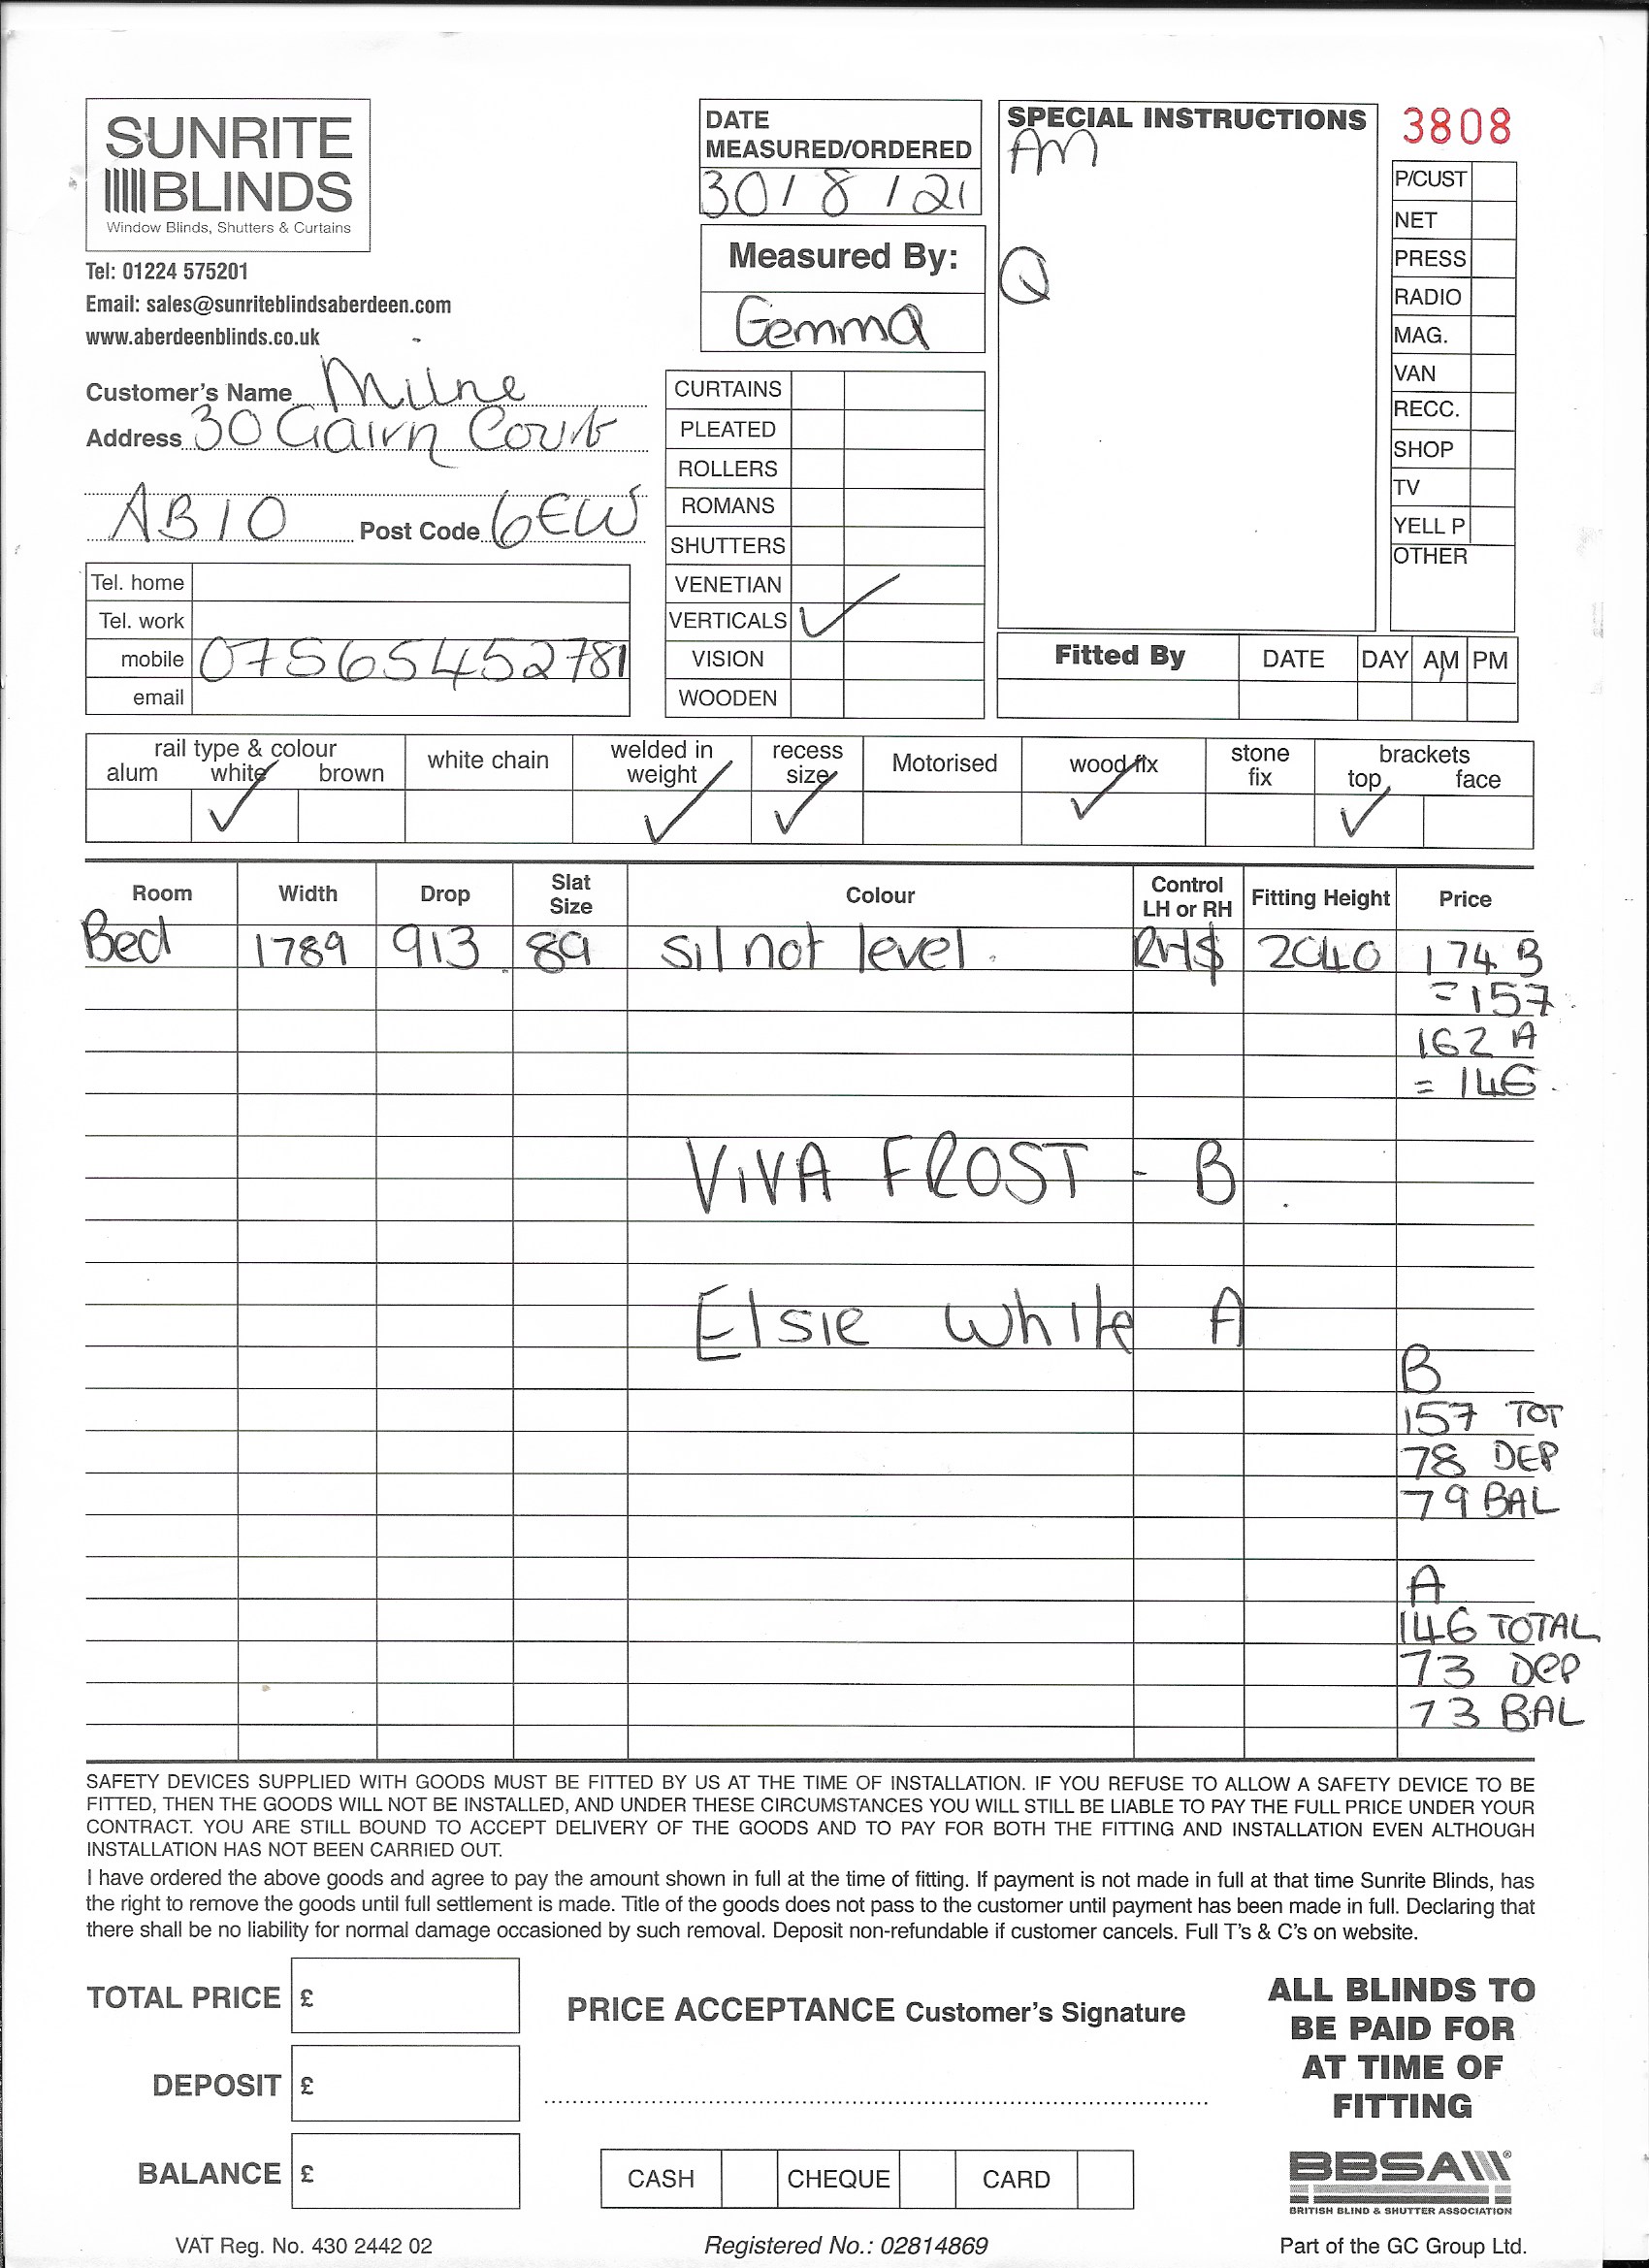 SUNRITE
BLINDS
Window Blinds, Shutters & Curtains
Tel: 01224 575201
Email: sales@sunriteblindsaberdeen.com
www.aberdeenblinds.co.uk
Customer's Name Milne
Address 30 Gairn Court
AB10 Post Code 6EW
Tel. home
Tel. work
mobile 07565452781
email
DATE
MEASURED/ORDERED
30/8/21
Measured By:
Gemma
CURTAINS
PLEATED
ROLLERS
ROMANS
SHUTTERS
VENETIAN
VERTICALS ✓
VISION
WOODEN
SPECIAL INSTRUCTIONS
AM
Q
3808
P/CUST
NET
PRESS
RADIO
MAG.
VAN
RECC.
SHOP
TV
YELL P
OTHER
Fitted By DATE DAY AM PM
rail type & colour
alum white brown
white chain
welded in
weight
recess
size
Motorised
wood fix
stone
fix
brackets
top face
✓ ✓ ✓ ✓ ✓
Room Width Drop Slat Size Colour Control LH or RH Fitting Height Price
Bed 1789 913 89 sil not level. RHS 2040 174 B
=157
162 A
= 146
VIVA FROST - B
Elsie White A
B
157 TOT
78 DEP
79 BAL
A
146 TOTAL
73 DEP
73 BAL
SAFETY DEVICES SUPPLIED WITH GOODS MUST BE FITTED BY US AT THE TIME OF INSTALLATION. IF YOU REFUSE TO ALLOW A SAFETY DEVICE TO BE
FITTED, THEN THE GOODS WILL NOT BE INSTALLED, AND UNDER THESE CIRCUMSTANCES YOU WILL STILL BE LIABLE TO PAY THE FULL PRICE UNDER YOUR
CONTRACT. YOU ARE STILL BOUND TO ACCEPT DELIVERY OF THE GOODS AND TO PAY FOR BOTH THE FITTING AND INSTALLATION EVEN ALTHOUGH
INSTALLATION HAS NOT BEEN CARRIED OUT.
I have ordered the above goods and agree to pay the amount shown in full at the time of fitting. If payment is not made in full at that time Sunrite Blinds, has
the right to remove the goods until full settlement is made. Title of the goods does not pass to the customer until payment has been made in full. Declaring that
there shall be no liability for normal damage occasioned by such removal. Deposit non-refundable if customer cancels. Full T's & C's on website.
TOTAL PRICE £
DEPOSIT £
BALANCE £
PRICE ACCEPTANCE Customer's Signature
CASH CHEQUE CARD
ALL BLINDS TO
BE PAID FOR
AT TIME OF
FITTING
BBSA
BRITISH BLIND & SHUTTER ASSOCIATION
VAT Reg. No. 430 2442 02
Registered No.: 02814869
Part of the GC Group Ltd.